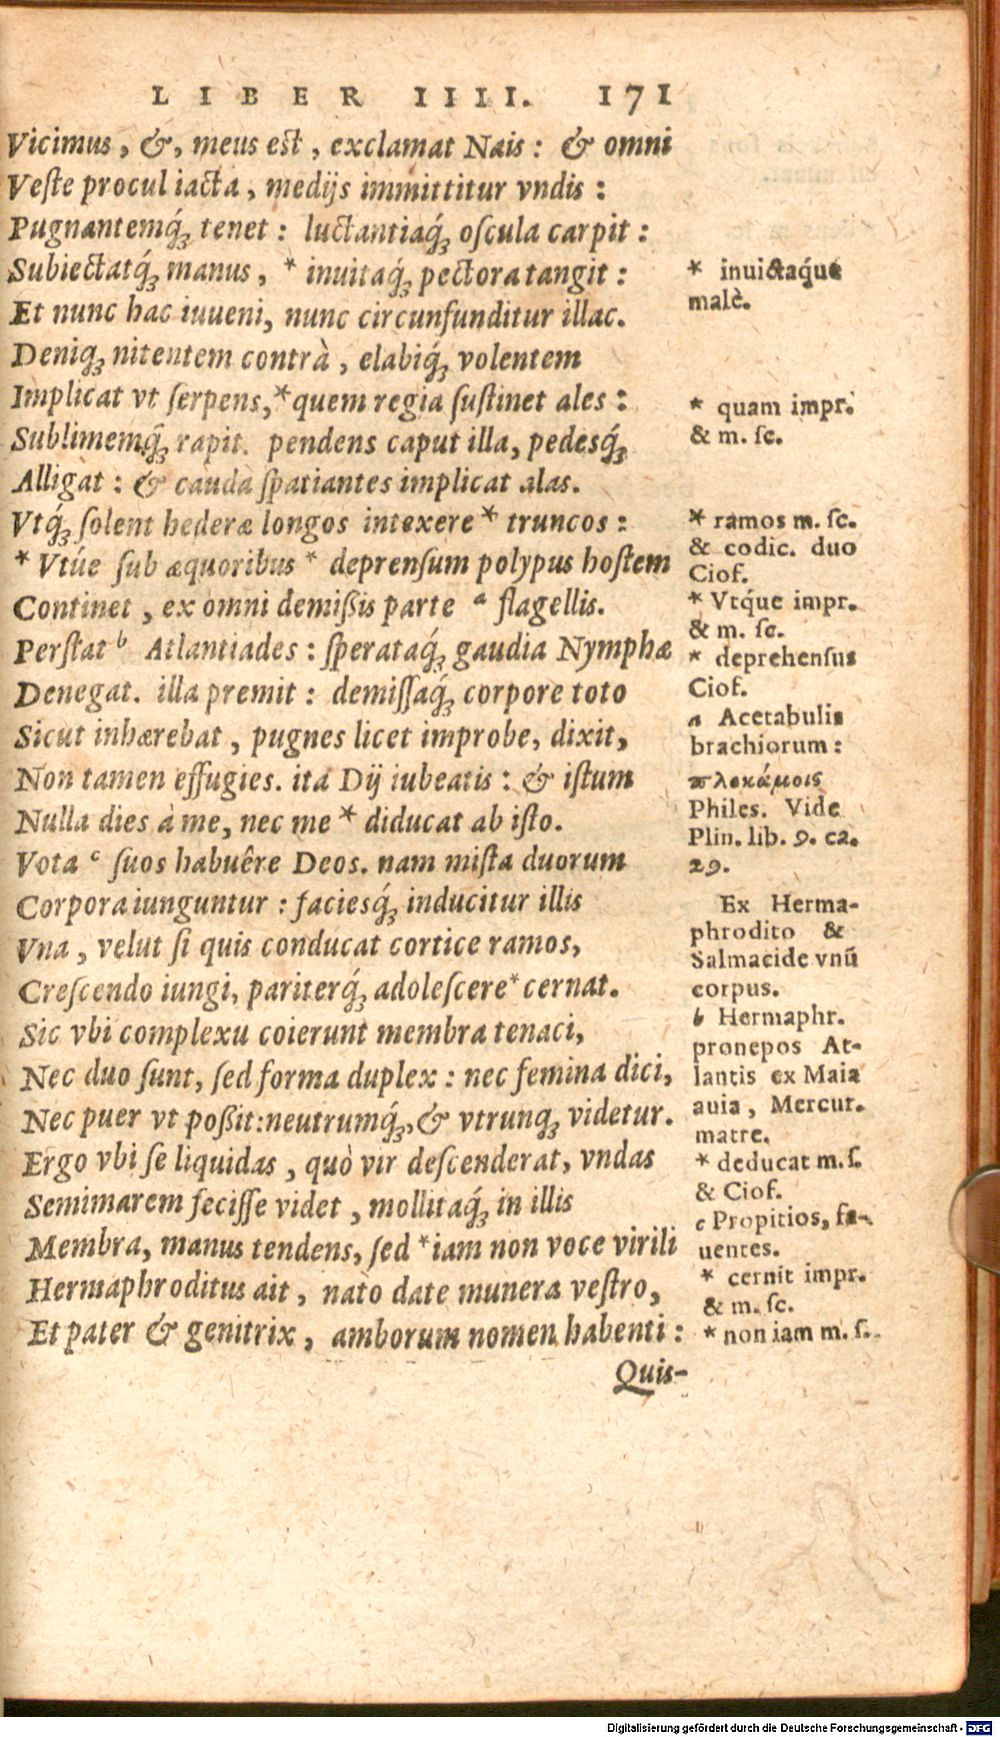 LIBER IIII. 171
Vicimus, &, meus est, exclamat Nais: & omni
Veste procul iacta, medijs immittitur vndis:
Pugnantemq́ꝫ tenet: luctantiaq́ꝫ oscula carpit:
Subiectatq́ꝫ manus, * inuitaq́ꝫ pectora tangit:
Et nunc hac iuueni, nunc circunfunditur illac.
Deniqꝫ nitentem contrà, elabiq́ꝫ volentem
Implicat vt serpens, * quem regia sustinet ales:
Sublimemq́ꝫ rapit. pendens caput illa, pedesq́ꝫ
Alligat: & cauda spatiantes implicat alas.
Vtq́ꝫ solent hederæ longos intexere * truncos:
* Vtúe sub æquoribus * deprensum polypus hostem
Continet, ex omni demißis parte a flagellis.
Perstat b Atlantiades: sperataq́ꝫ gaudia Nymphæ
Denegat. illa premit: demissaq́ꝫ corpore toto
Sicut inhærebat, pugnes licet improbe, dixit,
Non tamen effugies. ita Dij iubeatis: & istum
Nulla dies à me, nec me * diducat ab isto.
Vota c suos habuêre Deos. nam mista duorum
Corpora iunguntur: faciesq́ꝫ inducitur illis
Vna, velut si quis conducat cortice ramos,
Crescendo iungi, pariterq́ꝫ adolescere * cernat.
Sic vbi complexu coierunt membra tenaci,
Nec duo sunt, sed forma duplex: nec femina dici,
Nec puer vt poßit: neutrumq́ꝫ, & vtrunqꝫ videtur.
Ergo vbi se liquidas, quò vir descenderat, vndas
Semimarem fecisse videt, mollitaq́ꝫ in illis
Membra, manus tendens, sed * iam non voce virili
Hermaphroditus ait, nato date munera vestro,
Et pater & genitrix, amborum nomen habenti:
Quis-
* inuictaq́ue
malè.
* quam impr.
& m. sc.
* ramos m. sc.
& codic. duo
Ciof.
* Vtq́ue impr.
& m. sc.
* deprehensus
Ciof.
a Acetabulis
brachiorum:
πλοκάμοις
Philes. Vide
Plin. lib. 9. ca.
29.
Ex Herma-
phrodito &
Salmacide vnū
corpus.
b Hermaphr.
pronepos At-
lantis ex Maia
auia, Mercur.
matre.
* deducat m. s.
& Ciof.
c Propitios, fa-
uentes.
* cernit impr.
& m. sc.
* non iam m. s.
Digitalisierung gefördert durch die Deutsche Forschungsgemeinschaft - DFG